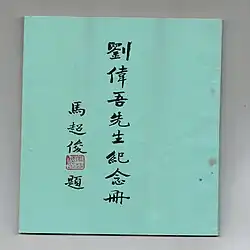 劉偉吾先生紀念冊
馬超俊題